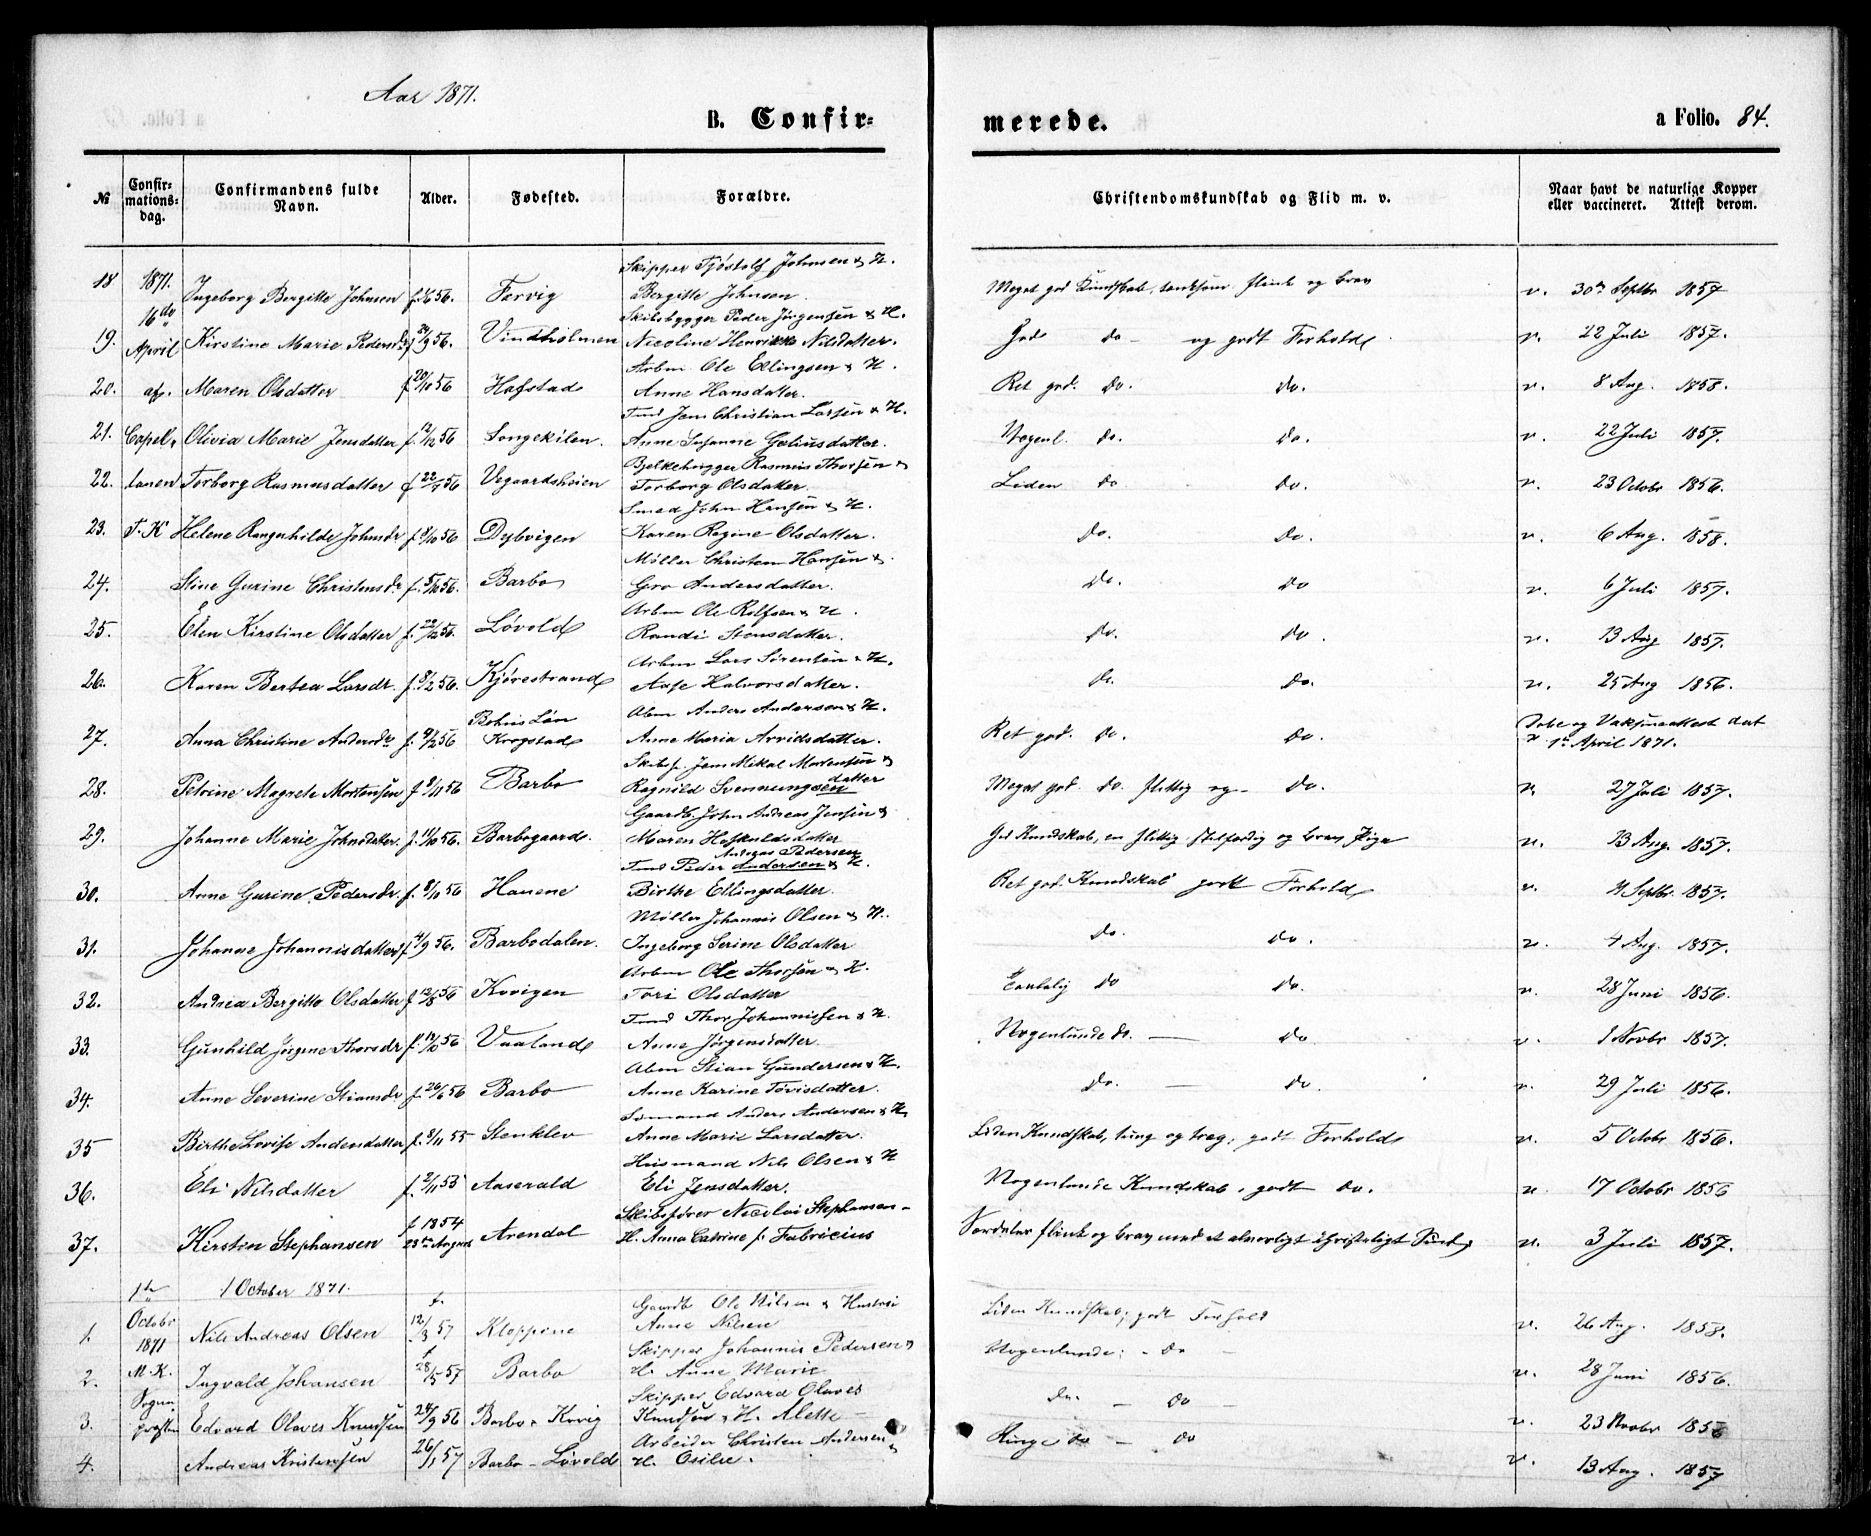 Aar 1871.
B. Confir=
merede.
a Folio. 84.
№
Confir=
mations=
dag.
Confirmandens fulde
Navn.
Alder.
Fødested.
Forældre.
Christendomskundskab og Flid m. v.
Naar havt de naturlige Kopper
eller vaccineret. Attest derom.
Skipper Tjøstolf Johnsen & H.
18 1871. Ingeborg Bergitte Johnsen Fervig Bergitte Johnsen. Meget god Kundskab, flink og brav v. 30te Septbr 1857
16de
Skibsbygger Peder Jørgensen & H.
19. April Kirstine Marie Pedersdr f 24/9 56. Vindholmen Nicoline Henrikke Nilsdatter. God do - og godt Forhold v. 22 Juli 1857.
Arbm Ole Ellingsen & H.
20. af Maren Olsdatter f 20/10 56 Hafstad Anne Hansdatter. Ret god. do. do. v. 8 Aug. 1858.
Jens Christian Larsen & H.
21. Capel- Olivia Marie Jensdatter f. 12/12 56 Songekilen. Anne Susanne Gjeliusdatter. Nogenl. do. do. v. 22 Juli 1857.
Bjelkehugger Rasmus Thorsen &
22. lanen Torborg Rasmusdatter f 22/7 56 Vegaardsheien Torborg Olsdatter. Liden do do. v. 23 Octobr 1856.
Smed John Hansen & H.
23. T. K Helene Rangnhilde Johnsdr f. 8/10 56 Dybvigen Karen Regine Olsdatter. do. do. v. 6 Aug. 1858.
Møller Christen Hansen &
24. Stine Gurine Christensdr f. 5/10 56. Barbo Gro Andersdatter. do. do v. 6 Juli 1857.
Arbm Ole Rolfsen & H.
25. Elen Kirstine Olsdatter f. 22/12 56. Løvold Randi Stensdatter. do. do. v. 13 Aug 1857.
Arbm Lars Sørensen & H.
26. Karen Bertea Larsdr. f. 8/2 56. Kjørestrand Aase Halvorsdatter. do. do. v. 25 Aug 1856.
Abm Anders Andersen & H.
27. Anna Christine Andersdr f. 9/12 56 Bohus Løn
Krogstad Anne Maria Arvidsdatter. Ret god. do. do. Dobe og Vakcineattest dat
1te April 1871.
Skibsf. Jens Mikal Mortensen &
28. Petrine Magrete Mortensen f 9/11 56 Barbo Ragnild Svennungsen
datter Meget god. do. flittig og - do. v. 27 Juli 1857.
Gaardb. John Andreas Jensen &
29. Johanne Marie Johnsdatter. f. 11/10 56. Barbogaard. Maren Hofkuldsdatter God Kundskab, en flittig og brav Pige v. 13 Aug. 1857.
Andreas Pedersen
Peder Andersen & H.
30. Anne Gurine Pedersdr f 8/10 56 Hauene Birthe Ellingsdatter. Ret god. Kundskab godt Forhold v. 4 Septbr. 1857.
Møller Johannis Olsen & H.
31. Johanne Johannisdatter f 4/9 56. Barbodalen. Ingeborg Serine Olsdatter do. do. v. 4 Aug. 1857.
Arbm Ole Thorsen & H.
32. Andrea Bergitte Olsdatter f 12/8 56 Kvvigen Tori Olsdatter do do. v. 28 Juni 1856.
Thor Johannissen & H.
33. Gunhild Jørgine Thorsdr Vaaland Anne Jørgensdatter. Nogenlunde do. — do v. 1 Novbr 1857.
Abm Stian Gundersen & H.
34. Anne Severine Stiansdr f. 26/6 56 Barbo Anne Karine Tovisdatter. do. — do. v. 29 Juli 1856.
Sømand Anders Andersen & H.
35 Birthe Lovise Andersdatter f. 8/11 55 Stenklev Anne Marie Larsdatter. Liden Kundskab, tung og træg, godt Forhold v. 5 Octobr 1856.
Husmand Nils Olsen & H
36. Eli Nilsdatter f. 2/11 55 Aaserald Eli Jensdatter. Nogenlunde Kundskab, godt do. v. 17 Octobr 1856
Skibsfører Nicolai Stephansen -
37. Kirstin Stephansen f 1854
23de August Arendal H. Anna Catrine f. Fabricius Særdeles flink og brav med et alvorligt christeligt Sind v. 3 Juli 1857.
1ste 1 October 1871.
Gaardb Ole Nilsen & Hustrui
1. Octobr
1871 Nils Andreas Olsen f. 12/3 57 Kloppene Anne Nilsen Liden Kundskab; godt Forhold v. 26 Aug. 1858.
Skipper Johannis Pedersen &
2. M. K. Ingvald Johansen f 28/5 57 Barbo H. Anne Marie Nogenlunde: - do - v. 28 Juni 1856.
Skipper Edvard Olaves
3. Sogne-
præsten Edvard Olaves Knudsen 24/9 56 Barbo - Kvvig Knudsen & H. Alette — do. - do - v. 23 Novbr 1856
Arbeider Christen Andersen &
4. Andreas Kristensen 26/1 57 Barbo - Løvold H. Osilie. Ringe do - do v. 13 Aug. 1857